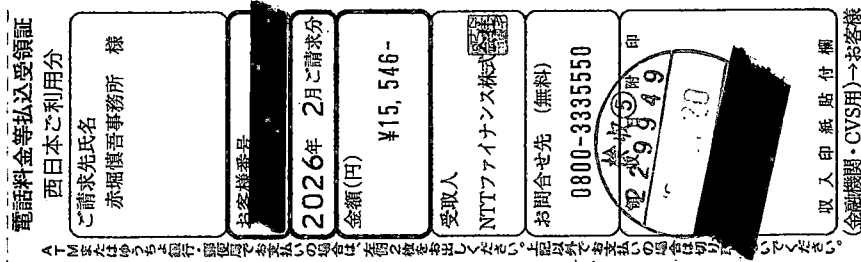 電話料金等払込受領証
西日本ご利用分
ご請求先氏名
赤堀慎吾事務所 様
お客様番号
2026年 2月ご請求分
金額(円)
¥15,546-
受取人
NTTファイナンス株式会社
お問合せ先 (無料)
0800-3335550
領収日附印
229949
収入印紙貼付欄
(金融機関・CVS用)→お客様
ATMまたはゆうちょ銀行・郵便局でお支払いの場合は、左側2枚をお出しください。上記以外でお支払いの場合は切り
いでください。